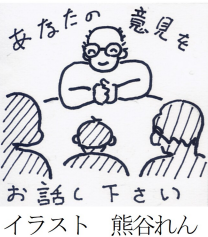 あなたの意見を
お話し下さい
イラスト　熊谷れん